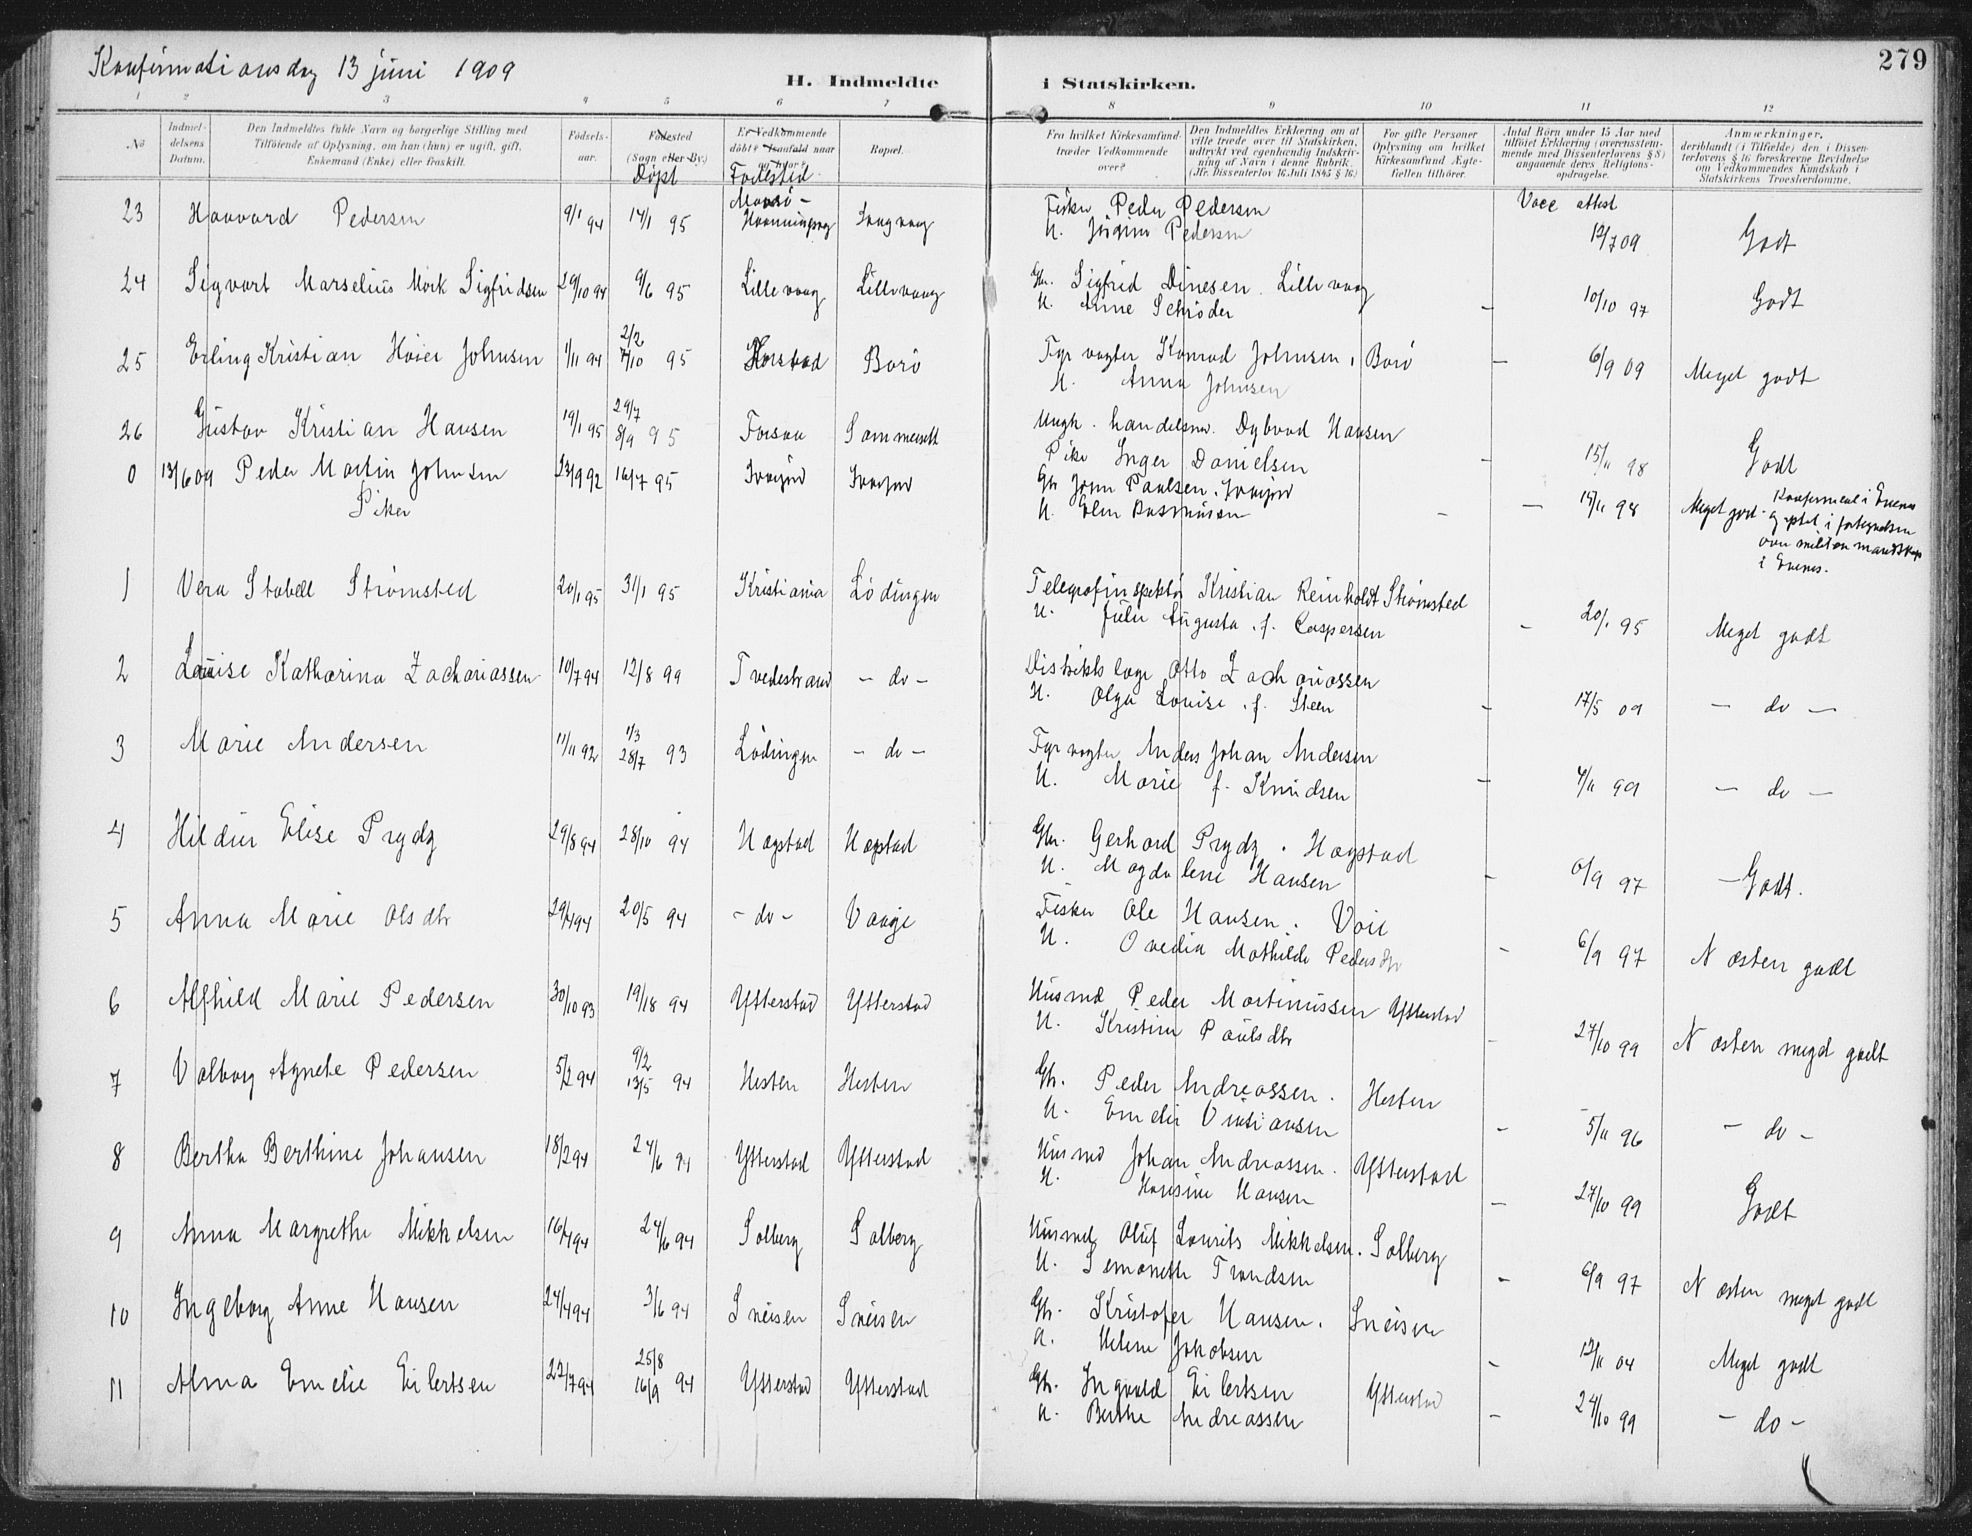 Konfirmationsdag 13 juni 1909
279
H. Indmeldte i Statskirken.
1 2 3 4 5 6 7 8 9 10 11 12
No
Indmeldelsens Datum.
Den Indmeldtes fulde Navn og borgerlige Stilling med Tilföiende af Oplysning, om han (hun) er ugift, gift, Enkemand (Enke) eller fraskilt.
Födselsaar.
Födested (Sogn eller By.)
Döpt
Er Vedkommende döbt? Isaafald naar og hvor?
Födested
Bopæl.
Fra hvilket Kirkesamfund træder Vedkommende over?
Den Indmeldtes Erklæring om at ville træde over til Statskirken, udtrykt ved egenhændig Indskrivning af Navn i denne Rubrik. (Jfr. Dissenterlov 16 Juli 1845 § 16)
For gifte Personer Oplysning om hvilket Kirkesamfund Ægtefællen tilhörer.
Antal Börn under 15 Aar med tilföiet Erklæring (overensstemmende med Dissenterlovens § 8) angaaende deres Religionsopdragelse.
Anmærkninger, deriblandt (i Tilfælde) den i Dissenterlovens § 16 foreskrevne Bevidnelse om Vedkommendes Kundskab i Statskirkens Troeslærdomme.
Vacc attest
23 Haavard Pedersen 9/1 94 14/1 95 Fisker Peder Pedersen
U. Pedersen 12/7 09 Godt
24 Sigvart Marselius Mork Sigfridsen 29/10 94 9/6 95 Lillevaag Lillevaag Gbr. Sigfrid Dinesen. Lillevaag
U. Anne Schrøder - 10/10 97 Godt
25 Erling Kristian Høier Johnsen 1/11 94 2/2 7/10 95 Harstad Barö Fyrvogter Konrad Johnsen, Barö
U. Anna Johnsen - 6/9 09 Meget godt
26 Gustav Kristian Hansen 19/1 95 29/7 8/9 95 Forsaa Ungk. handelsm. Dybvad Hansen
Pike Inger Danielsen - 15/11 98 Godt
0 13/6 09 Peder Martin Johnsen 23/9 92 16/7 95 Gbr John Paulsen.
Fisker U. Elen Rasmussen - 15/11 98 Meget godt. Konfirmeret i Evenes
i fortegnelsen
over mandskap
i Evenes.
1 Vera Stabell Strömsted 20/1 95 31/1 95 Kristiania Lödingen Telegrafinspektör Kristian Reinholdt Strömsted
U. Julie Augusta f. Caspersen - 20/1 95 Meget godt
2 Louise Katharina Zachariassen 10/7 94 12/8 99 Tvedestrand - do - Distriktslæge Otto Zachariassen
U. Olga Louise f. Steen - 17/5 09 - do -
3 Marie Andersen 11/11 92 1/3 28/7 93 Lödingen - do - Fyrvogter Anders Johan Andersen
U. Marie f. Knudsen - 4/11 99 - do -
4 Hildur Elise Prydz 29/8 94 28/10 94 Hægstad Hægstad Gbr. Gerhard Prydz. Hægstad
U. Magdalene Hansen - 6/9 97 - Godt.
5 Anna Marie Olsdtr 29/4 94 20/5 94 - do - Vaaje Fisker Ole Hansen.
U. Ovedia Mathilde Pedersdtr - 6/9 97 Næsten godt
6 Alfhild Marie Pedersen 30/10 93 19/18 94 Ytterstad Ytterstad Husmd Peder Martinussen Ytterstad
U. Kristine Paulsdtr - 27/10 99 Næsten meget godt
7 Valborg Agnete Pedersen 5/2 94 9/2 13/5 94 Hesten Hesten Gbr. Peder Andreassen. Hesten
U. Emelie Kristiansen - 5/11 96 - do -
8 Bertha Berthine Johansen 18/2 94 24/6 94 Ytterstad Ytterstad Husmd Johan Andreassen. Ytterstad
U. Hansine Hansen - 27/10 99 Godt
9 Anna Margrethe Mikkelsen 16/4 94 24/6 94 Solberg Solberg Husmd Oluf Laurits Mikkelsen. Solberg
U. Semonette Trondsen - 6/9 97 Næsten meget godt
10 Ingeborg Anne Hansen 24/4 94 3/6 94 Sneisen Sneisen Gbr. Kristofer Hansen. Sneisen
U. Helene Jakobsen - 12/11 04 Meget godt
11 Alma Emelie Eilertsen 22/7 94 25/8 16/9 94 Ytterstad Ytterstad Gbr. Ingvald Eilertsen Ytterstad
U. Berthe Andreassen - 24/10 99 - do -